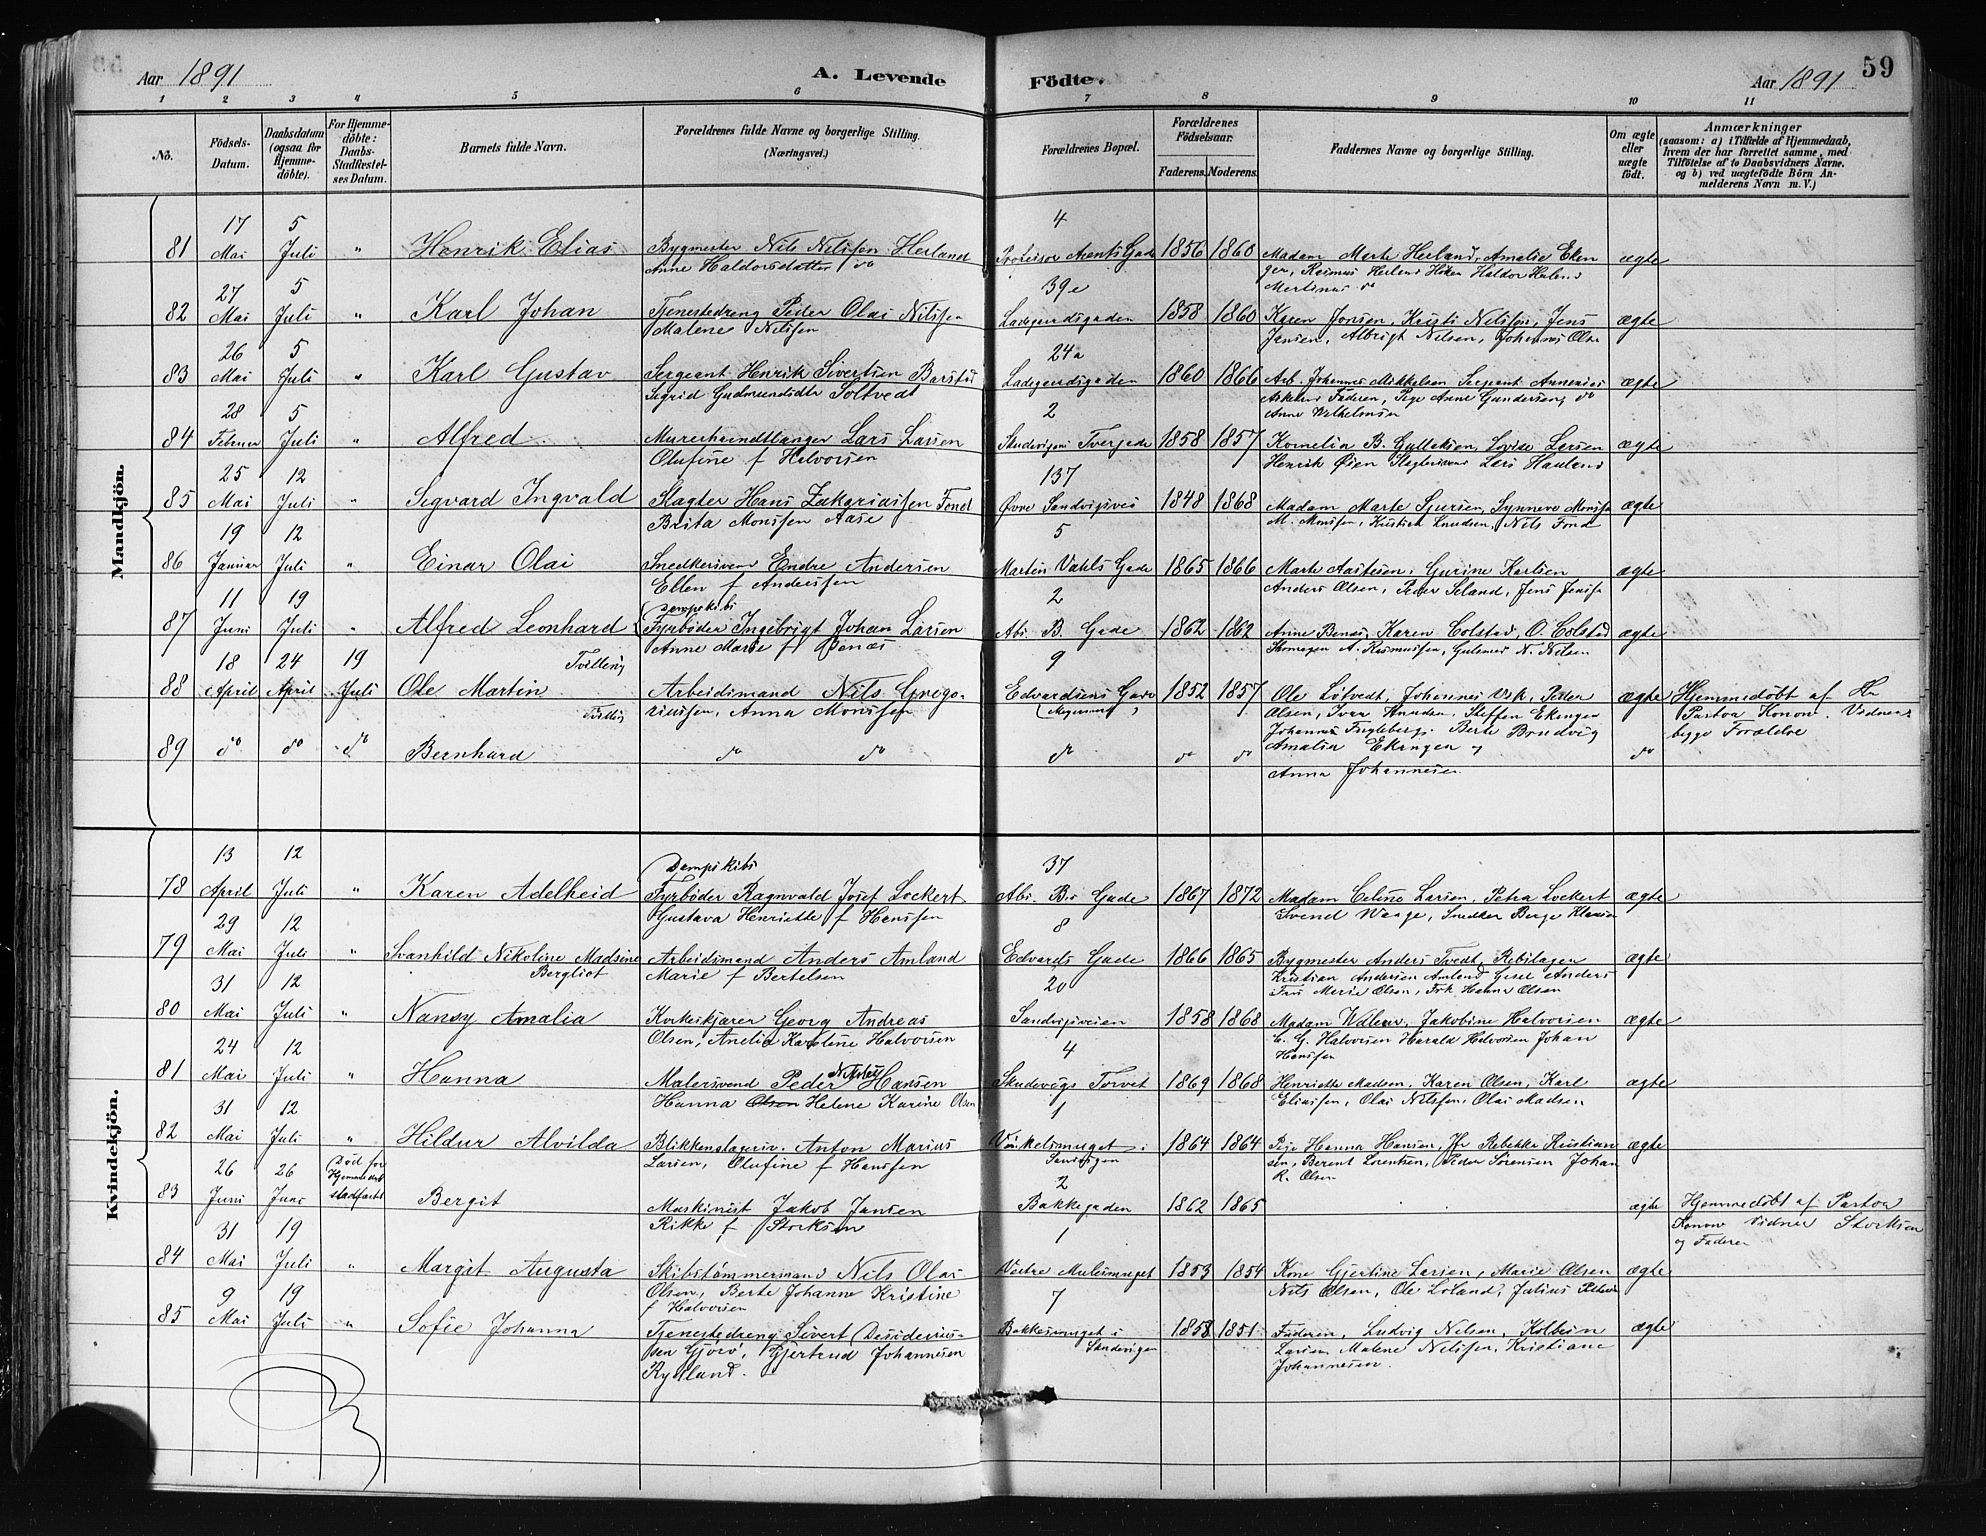 59
Aar 1891 A. Levende Födte. Aar 1891
1 2 3 4 5 6 7 8 9 10 11
No. Födsels-Datum. Daabsdatum (ogsaa for Hjemme-döbte). For Hjemme-döbte: Daabs-Stadfæstel-ses Datum. Barnets fulde Navn. Forældrenes fulde Navne og borgerlige Stilling. (Næringsvei.) Forældrenes Bopæl. Forældrenes Födselsaar. Faderens. Moderens. Faddernes Navne og borgerlige Stilling. Om ægte eller uægte födt. Anmærkninger (saasom: a) i Tilfælde af Hjemmedaab, hvem der har forrettet samme, med Tilföielse af to Daabsvidners Navne, og b) ved uægtefödte Börn An-melderens Navn m. V.)
Mandkjön.
17 5 4
81 Mai Juli " Henrik Elias Bygmester Nils Nilssen Herland Professor Arents Gade 1856 1860 Madam Marte Herland, Amalie Eken ægte
Anne Haldorsdatter do ger, Rasmus Herland Haldor
27 5 39e Martinus do
82 Mai Juli " Karl Johan Tjenestedreng Peder Olai Nilssen Ladegaardsgaden 1858 1860 Karen Jonsen, Kristi Nilssen, Jens ægte
Malene Nilssen Jansen, Albrigt Nilsen, Johannes Olsen
26 5 24a
83 Mai Juli " Karl Gustav Sergeant Henrik Sivertsen Barstad Ladegaardsgaden 1860 1866 Arb. Johannes Mikkelsen Sergeant Annanias ægte
Sigrid Gudmundsdtr Soltvedt Askeland Faderen, Pige Anne Gundersen, do
28 5 2 Anne Wilhelmsen
84 Februar Juli " Alfred Murerhaandlanger Lars Larsen Skudevigens Tvergade 1858 1857 Kornelia B. Gulleksen, Lovise Larsen ægte
Olufine f Halvorsen Henrik Øien Slagtersvend Lars Hauland
25 12 137
85 Mai Juli " Sigvard Ingvald Slagter Hans Zakariassen Fond Øvre Sandvigsvei 1848 1868 Madam Marte Sjursen, Synneve Monssen ægte
Brita Monssen Aase M. Monssen, Kristian Knudsen, Nils Fond
19 12 5
86 Januar Juli " Einar Olai Snedkersvend Endre Andersen Marten Vahls Gade 1865 1866 Marte Aastesen, Gurine Karlsen ægte
Ellen f Anderssen Anders Olsen, Peder Seland, Jens Jenssen
11 19 Dampskibs 2
87 Juni Juli " Alfred Leonhard Fyrbøder Ingebrigt Johan Larsen Abs. B. Gade 1862 1862 Anne Benæs, Karen Colstad, O. Colstad ægte
Anne Marie f Benæs A. Rasmussen, N. Nilsen
18 24 19 Tvilling 9
88 April April Juli Ole Martin Arbeidsmand Nils Grego- Edvardsens Gade 1852 1857 Ole Lotvedt, Johannes Vik, Peder ægte Hjemmedøbt af Hr
Tvilling riussen, Anna Monssen Olsen, Ivar Knudsen, Steffen Ekingen Pastor Konow. Vidner
Johannes Berte Brudvig begge Forældre
89 do do do Bernhard do do do do do Amalia Ekingen og do
Anna Johannesen
Kvindekjön.
13 12 Dampskibs 37
78 April Juli " Karen Adelheid Fyrbøder Ragnvald Josef Lockert Abs. B. Gade 1867 1872 Madam Celine Larsen, Petra Lockert ægte
Gustava Henriette f Hanssen Svend Waage, Snedker Berge
29 12 8
79 Mai Juli " Svanhild Nikoline Madsine Arbeidsmand Anders Amland Edvards Gade 1866 1865 Bygmester Anders Tvedt, ægte
Bergliot Marie f Bertelsen Kristian Andersen Amland Anders
31 12 20 Marie Olsen, Frk Hanna Olsen
80 Mai Juli " Nansy Amalia Korkskjærer Georg Andreas Sandvigsveien 1858 1868 Madam Jakobine Halvorsen ægte
Olsen, Anelia Karoline Halvorsen C. G. Halvorsen Harald Halvorsen Johan
24 12 4 Hanssen
81 Mai Juli " Hanna Malersvend Peder Nikolay Hansen Skudevigs Torvet 1869 1868 Henriette Madsen, Karen Olsen, Karl ægte
Hanna Olsen Helene Karine Olsen Eliassen, Olai Nilssen, Olai Madsen
31 12 1
82 Mai Juli " Hildur Alvilda Blikkenslagersv. Anton Marius Vinkelsmuget i 1864 1864 Pige Hanna Hansen, Jfr Rebekka Kristian ægte
Larsen, Olufine f Hanssen Sandvigen sen, Berent Lorentsen, Peder Sørensen Johan
26 26 Død før Hjemmedaab stadfæstet 2 R. Olsen
83 Juni Juni Bergit Maskinist Jakob Jansen Bakkegaden 1862 1865 ægte Hjemmedøbt af Pastor
Rikke f Storksen Konow Vidner Storksen
31 19 1 og Faderen
84 Mai Juli " Margit Augusta Skibstømmermand Nils Olai Vestre Mulesmuget 1853 1854 Kone Gjertine Larsen, Marie Olsen ægte
Olsen, Berte Johanne Kristine Nils Olsen, Ole Loland, Julius
9 19 f Halvorsen 7
85 Mai Juli " Sofie Johanna Tjenestedreng Sivert Desiderius- Bakkesmuget i 1858 1851 Faderen, Ludvig Nilsen, Kolbein ægte
sen Gjerv, Gjertrud Johannesen Sandvigen Larsen Malene Nilssen, Kristiane
Rylland. Johannesen